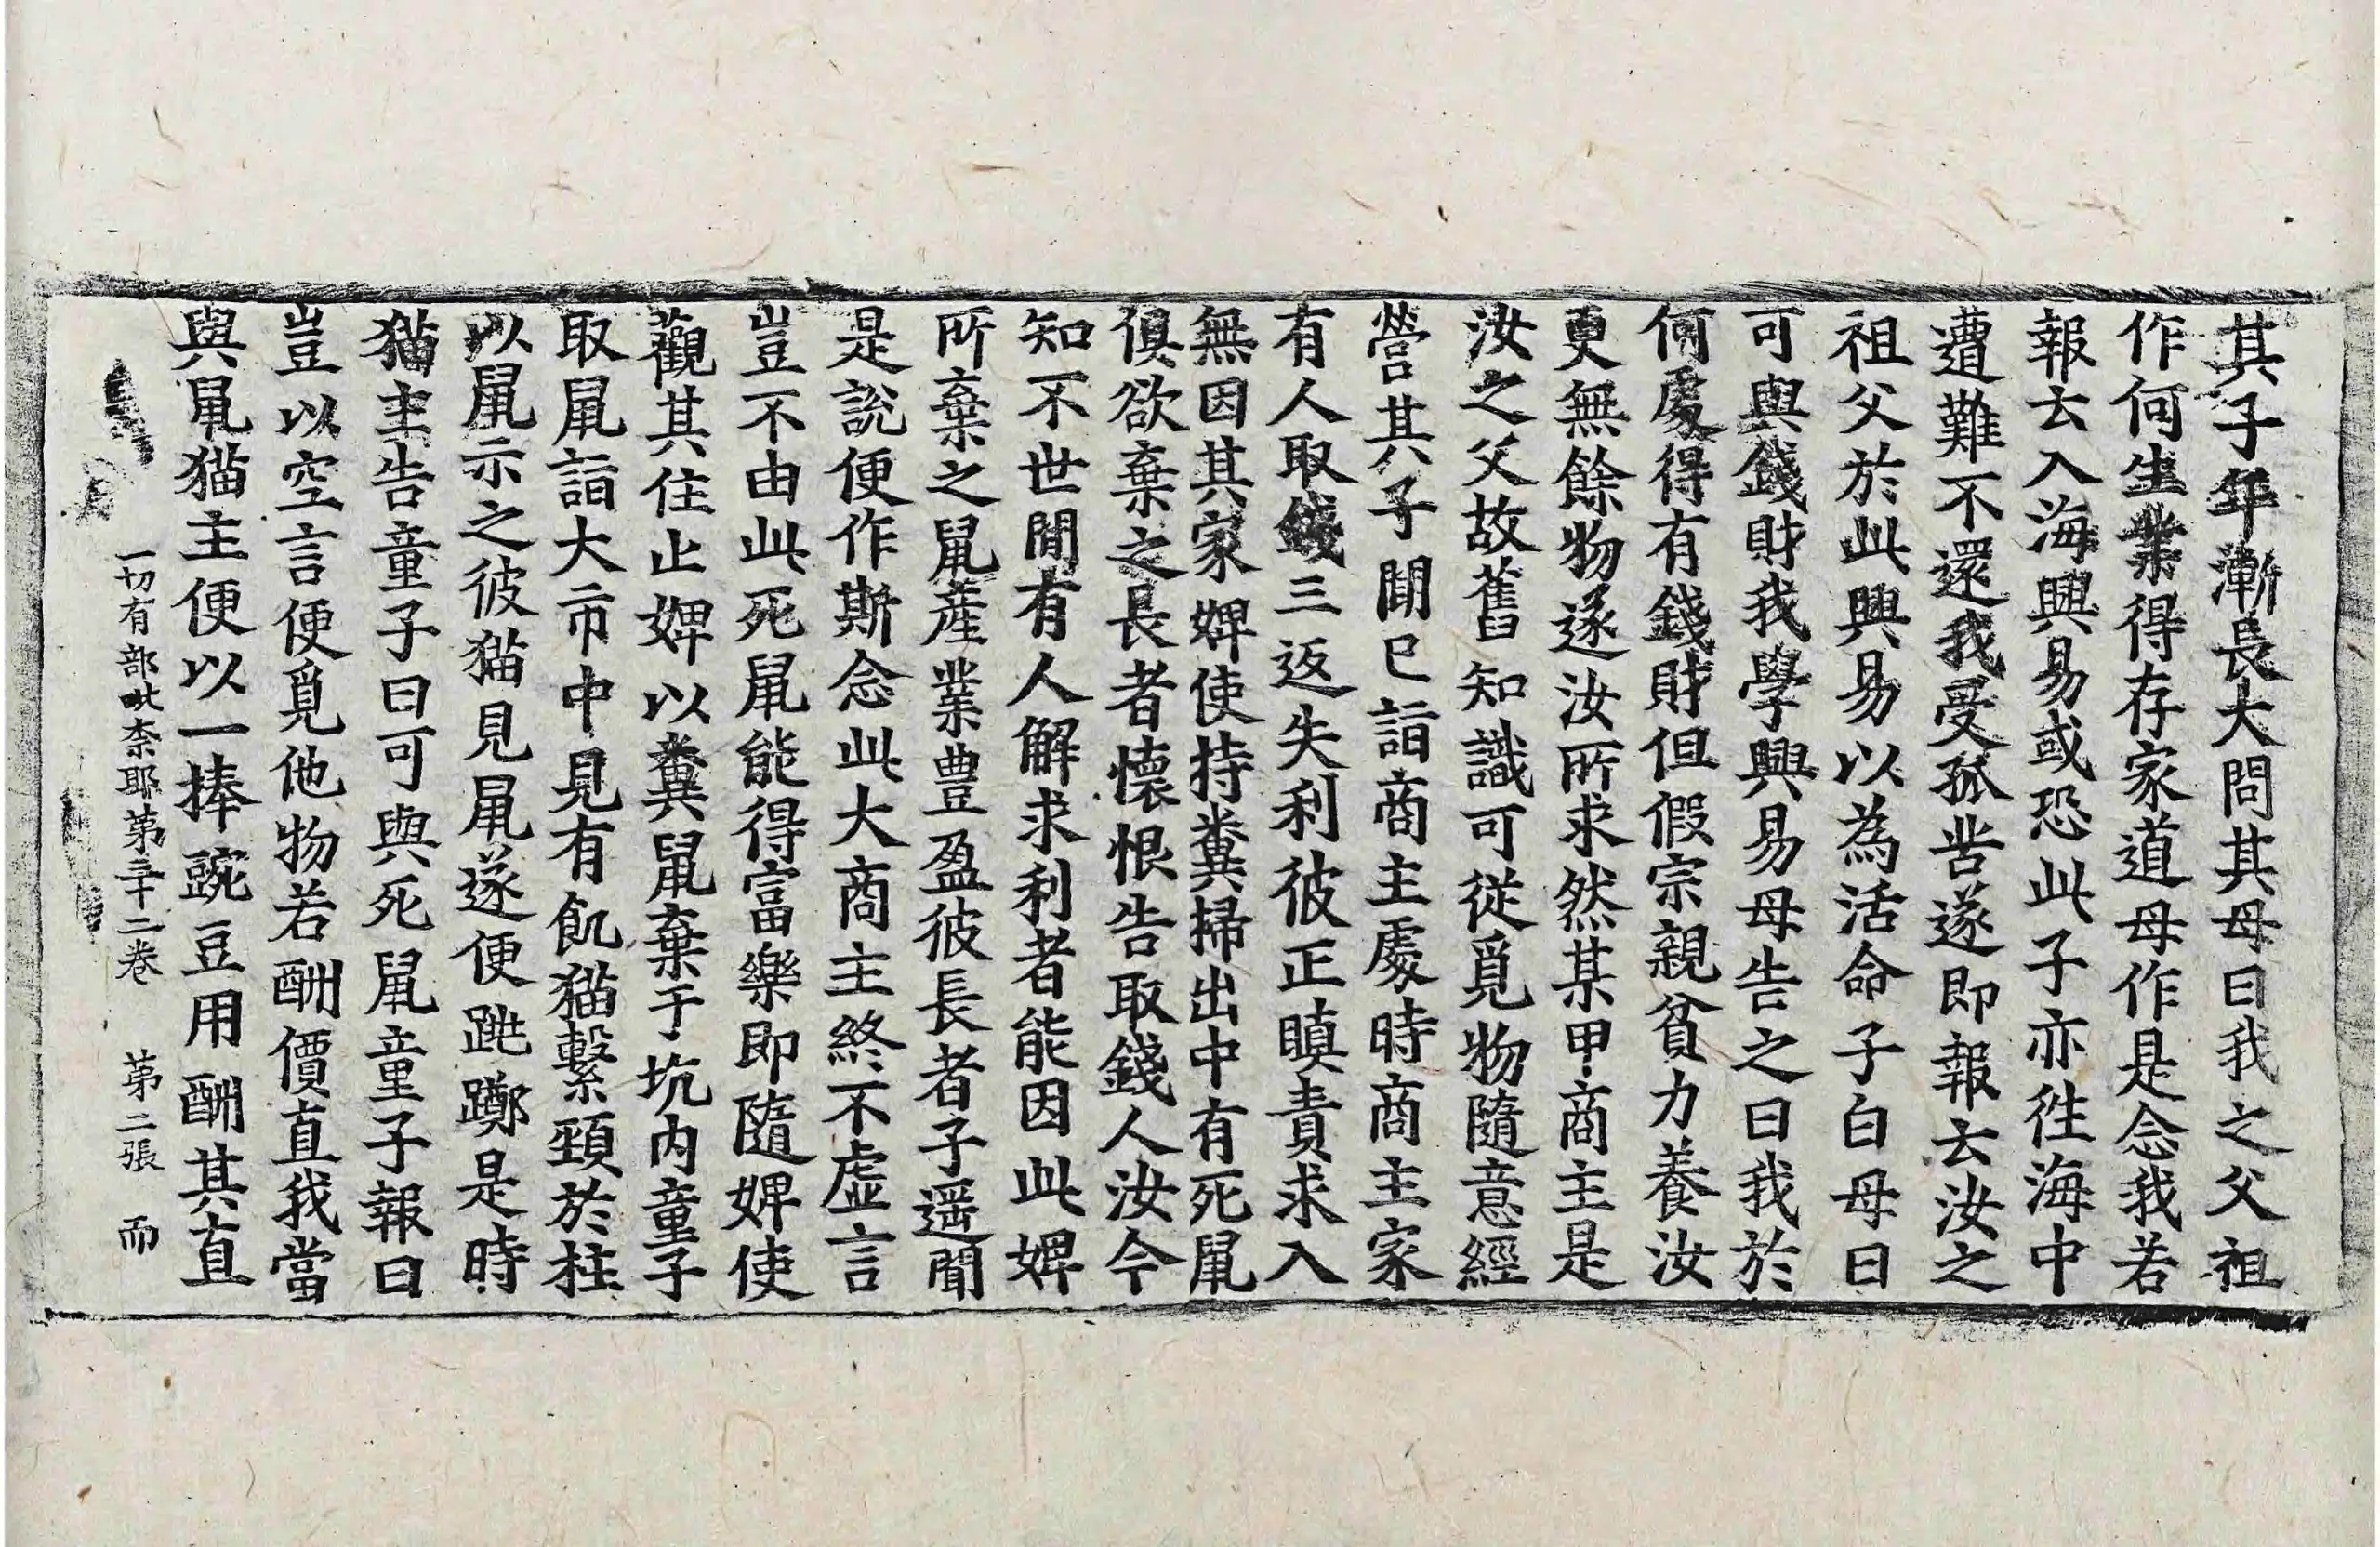 其子年漸長大問其母曰我之父祖
作何生業得存家道母作是念我若
報去入海興易或恐此子亦徃海中
遭難不還我受孤苦遂即報去汝之
祖父於此興易以為活命子白母曰
可與錢財我學興易母告之曰我於
何處得有錢財但假宗親貧力養汝
更無餘物遂汝所求然某甲商主是
汝之父故舊知識可從覓物隨意經
營其子聞已詣商主處時商主家
有人取錢三返失利彼正瞋責求入
無因其家婢使持糞掃出中有死鼠
俱欲棄之長者懷恨告取錢人汝今
知不世間有人解求利者能因此婢
所棄之鼠產業豊盈彼長者子遥聞
是說便作斯念此大商主終不虛言
豈不由此死鼠能得富樂即隨婢使
觀其住止婢以糞鼠棄于坑內童子
取鼠詣大市中見有飢猫繫頸於柱
以鼠示之彼猫見鼠遂便跳躑是時
猫主告童子曰可與死鼠童子報曰
豈以空言便覓他物若酬價直我當
與鼠猫主便以一捧豌豆用酬其直
一切有部毗柰耶第三十二卷 第二張 而